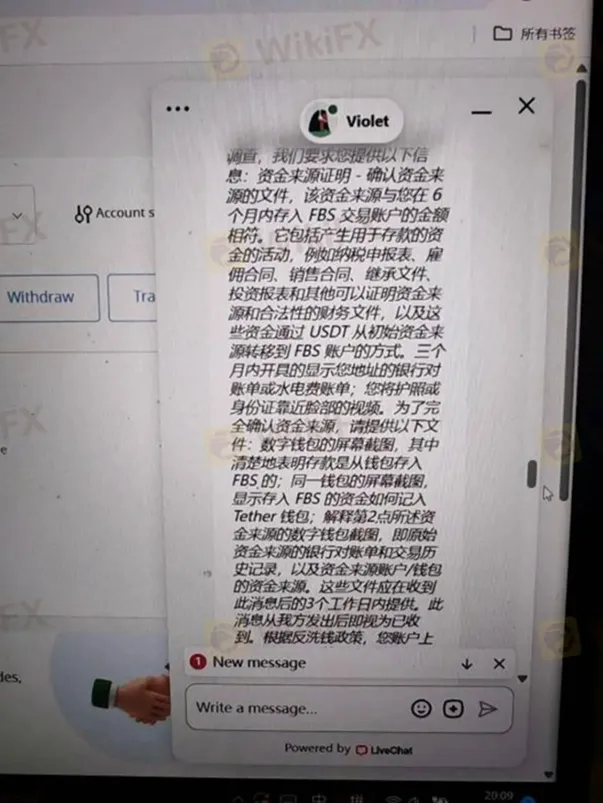 WikiFX
所有书签
Violet
调查，我们要求您提供以下信
息：资金来源证明 - 确认资金来
源的文件，该资金来源与您在 6
个月内存入 FBS 交易账户的金额
相符。它包括产生用于存款的资
金的活动，例如纳税申报表、雇
佣合同、销售合同、继承文件、
投资报表和其他可以证明资金来
源和合法性的财务文件，以及这
些资金通过 USDT 从初始资金来
源转移到 FBS 账户的方式。三个
月内开具的显示您地址的银行对
账单或水电费账单；您将护照或
身份证靠近脸部的视频。为了完
全确认资金来源，请提供以下文
件：数字钱包的屏幕截图，其中
清楚地表明存款是从钱包存入
FBS 的；同一钱包的屏幕截图，
显示存入 FBS 的资金如何记入
Tether 钱包；解释第2点所述资
金来源的数字钱包截图，即原始
资金来源的银行对账单和交易历
史记录，以及资金来源账户/钱包
的资金来源。这些文件应在收到
此消息后的3个工作日内提供。此
消息从我方发出后即视为已收
到。根据反洗钱政策，您账户上
1 New message
Write a message...
Powered by LiveChat
Account s
Withdraw
Tra
e
des,
20:09